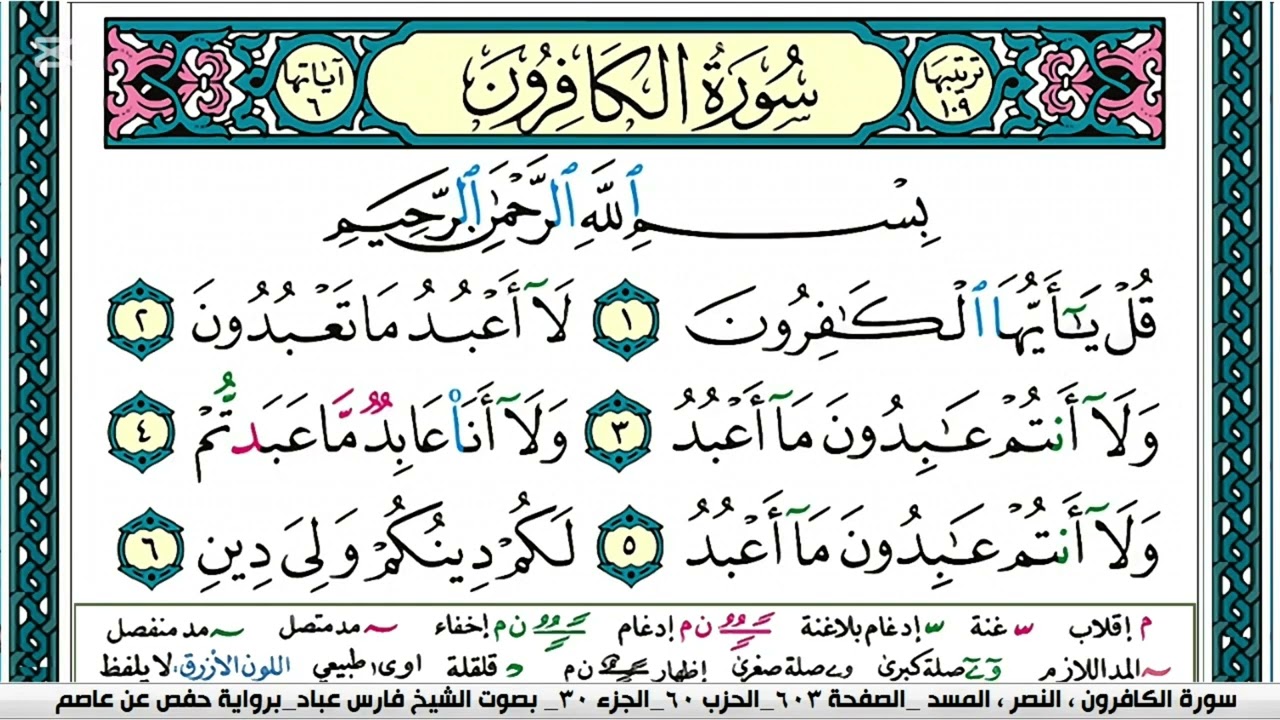 ترتيبها ١٠٩ سُورَةُ الكَافِرُونَ آياتها ٦
بِسْمِ ٱللَّهِ ٱلرَّحْمَٰنِ ٱلرَّحِيمِ
قُلْ يَـٰٓأَيُّهَا ٱلْكَـٰفِرُونَ ١ لَآ أَعْبُدُ مَا تَعْبُدُونَ ٢
وَلَآ أَنتُمْ عَـٰبِدُونَ مَآ أَعْبُدُ ٣ وَلَآ أَنَا۠ عَابِدٌ مَّا عَبَدتُّمْ ٤
وَلَآ أَنتُمْ عَـٰبِدُونَ مَآ أَعْبُدُ ٥ لَكُمْ دِينُكُمْ وَلِىَ دِينِ ٦
م إقلاب غنة إدغام بلاغنة ن م إدغام ن م إخفاء مد متصل مد منفصل
المد اللازم صلة كبرى صلة صغرى إظهار ن م قلقلة اوى طبيعي اللون الأزرق: لا يلفظ
سورة الكافرون ، النصر ، المسد _الصفحة ٦٠٣_الحزب ٦٠_الجزء ٣٠_ بصوت الشيخ فارس عباد_برواية حفص عن عاصم